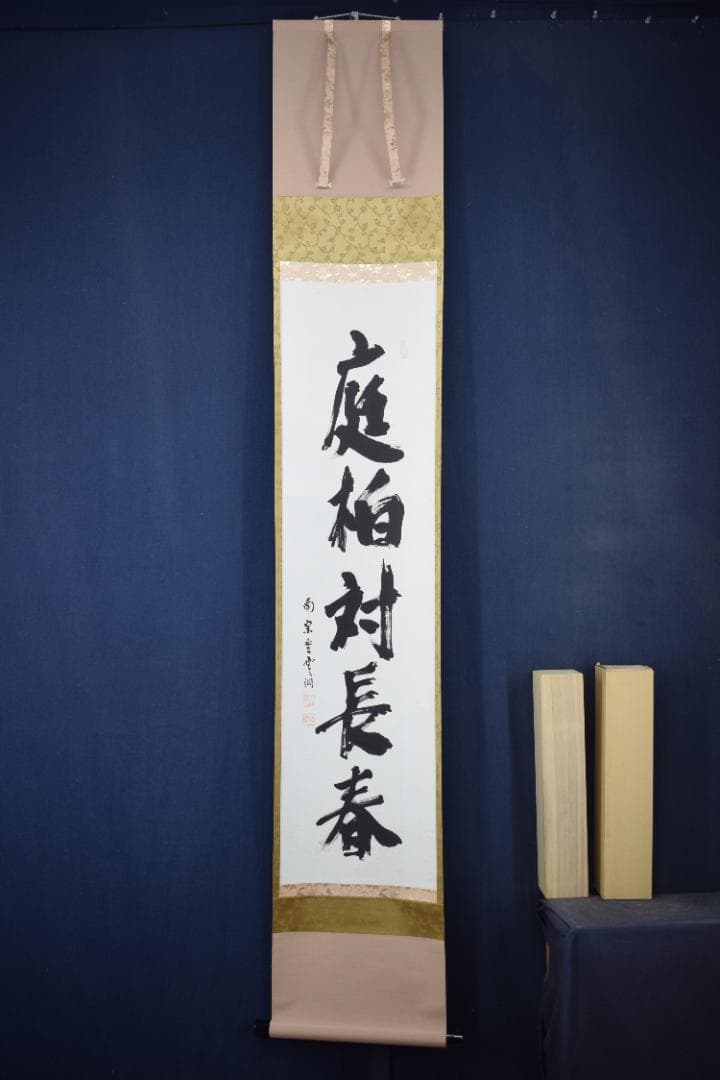 庭柏対長春
南宗